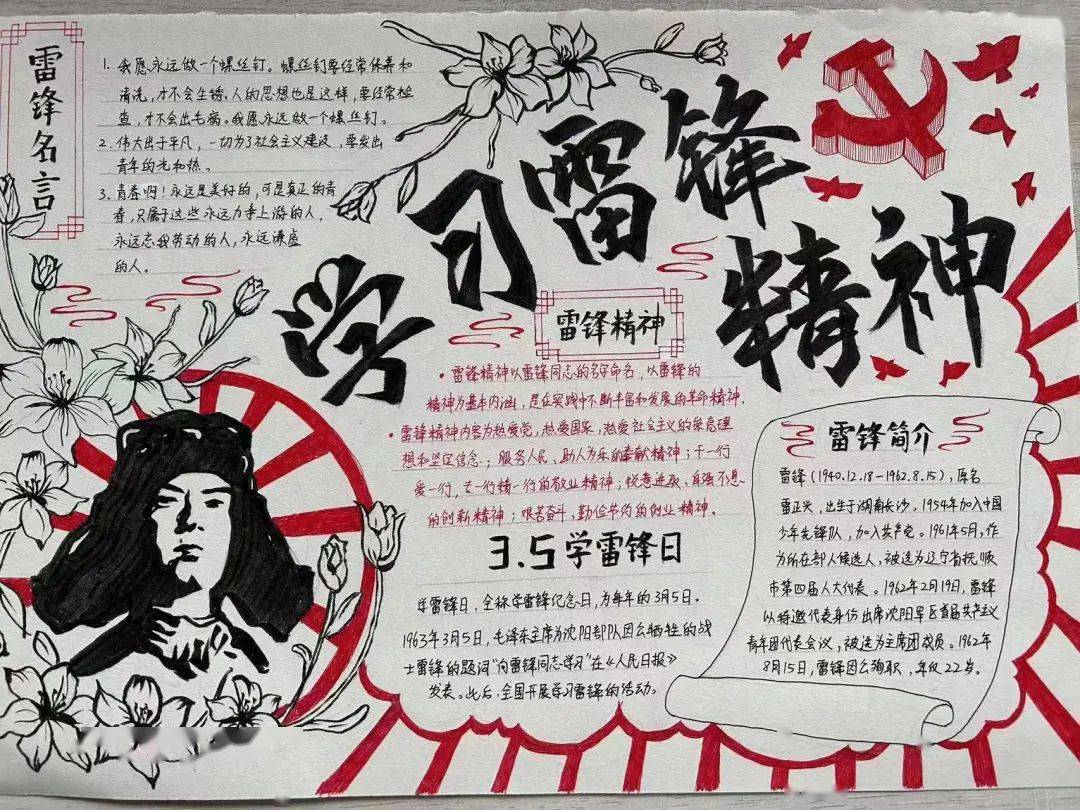 雷锋名言
1. 我愿永远做一个螺丝钉。螺丝钉要经常保养和
清洗,才不会生锈。人的思想也是这样,要经常检
查,才不会出毛病。我愿永远做一个螺丝钉。
2. 伟大出于平凡,一切为了社会主义建设,要发出
青年的光和热。
3. 青春啊!永远是美好的,可是真正的青
春,只属于这些永远力争上游的人,
永远忘我劳动的人,永远谦虚
的人。
学习雷锋
精神
雷锋精神
• 雷锋精神以雷锋同志的名字命名,以雷锋的
精神为基本内涵,是在实践中不断丰富和发展的革命精神。
• 雷锋精神内容为热爱党,热爱国家,热爱社会主义的崇高理
想和坚定信念;服务人民、助人为乐的奉献精神;干一行
爱一行,专一行精一行的敬业精神;锐意进取、自强不息
的创新精神;艰苦奋斗,勤俭节约的创业精神。
3.5学雷锋日
学雷锋日,全称学雷锋纪念日,为每年的3月5日。
1963年3月5日,毛泽东主席为沈阳部队因公牺牲的战
士雷锋的题词“向雷锋同志学习”在《人民日报》
发表。此后,全国开展学习雷锋的活动。
雷锋简介
雷锋(1940.12.18-1962.8.15),原名
雷正兴,出生于湖南长沙。1954年加入中国
少年先锋队,加入共产党。1961年5月,作
为所在部人候选人,被选为辽宁省抚顺
市第四届人大代表。1962年2月19日,雷锋
以特邀代表身份出席沈阳军区首届共产主义
青年团代表会议,被选为主席团成员。1962年
8月15日,雷锋因公殉职,年仅22岁。